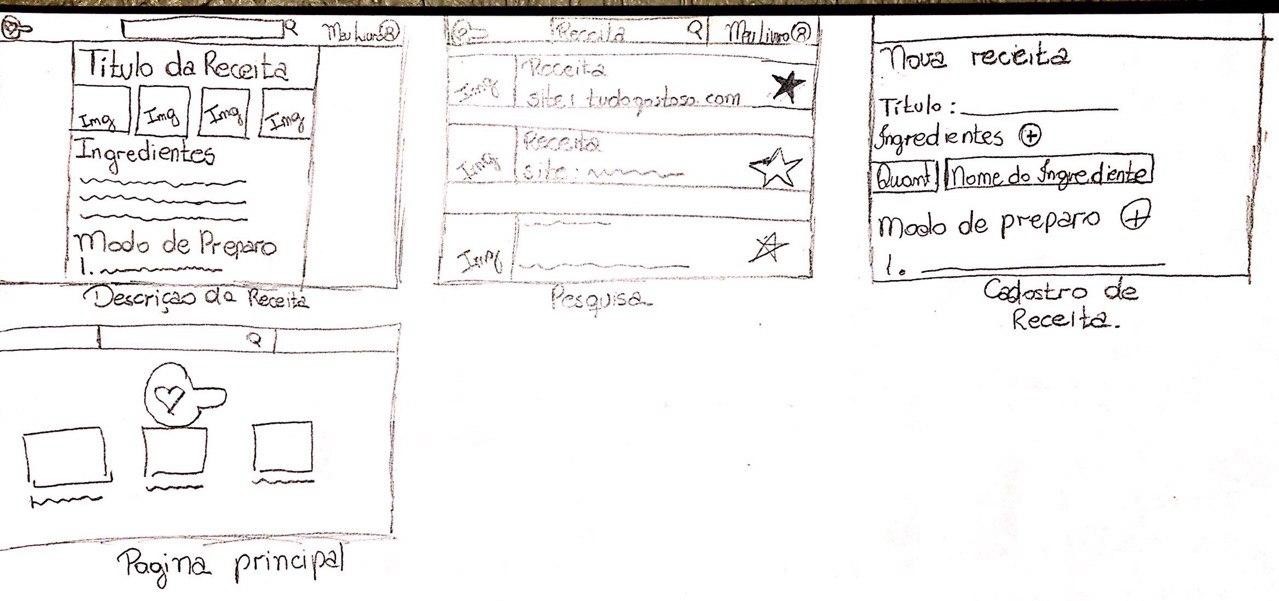 Meu Livro
Título da Receita
Img Img Img Img
Ingredientes
Modo de Preparo
1.
Descrição da Receita
Receita
Meu Livro
Img
Receita
site: tudogostoso.com
Img
Receita
site:
Img
Pesquisa
Nova receita
Título:
Ingredientes +
Quant
Nome do Ingrediente
Modo de preparo +
1.
Cadastro de
Receita.
Pagina principal